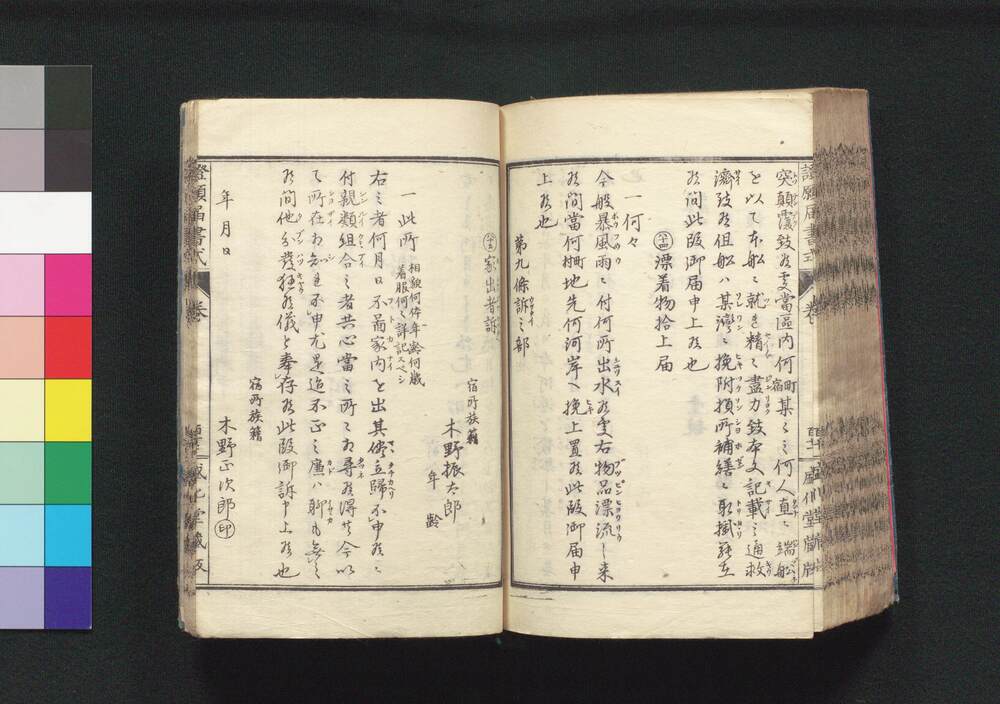 證願届書式
卷
盛化堂藏版
突顛覆致候處當區内何町宿某々々何人直ニ端舩
を以て本舩ニ就き精々盡力致本文記載之通救
濟致候但舩ハ某灣ニ挽附損所補繕ニ取掛罷在
候間此段御届申上候也
漂着物拾上届
一何々
今般暴風雨ニ付何所出水候處右物品漂流し来
候間當何村町地先何河岸へ挽上置候此段御届申
上候也
第九條訴之部
家出者訴
宿所族籍
木野振太郎
年齢
一此所
相貌何体年齢何歳
着服何々詳記スベシ
右之者何月日不圖家内を出其侭立歸不申候ニ
付親類組合之者共心當之所々相尋候得共今以
て所在相知れ不申尤是迄不正之廉ハ聊も無之
候間他分發狂候儀と奉存候此段御訴申上候也
宿所族籍
年月日
木野正次郎 印
證願届書式
卷
盛化堂藏版